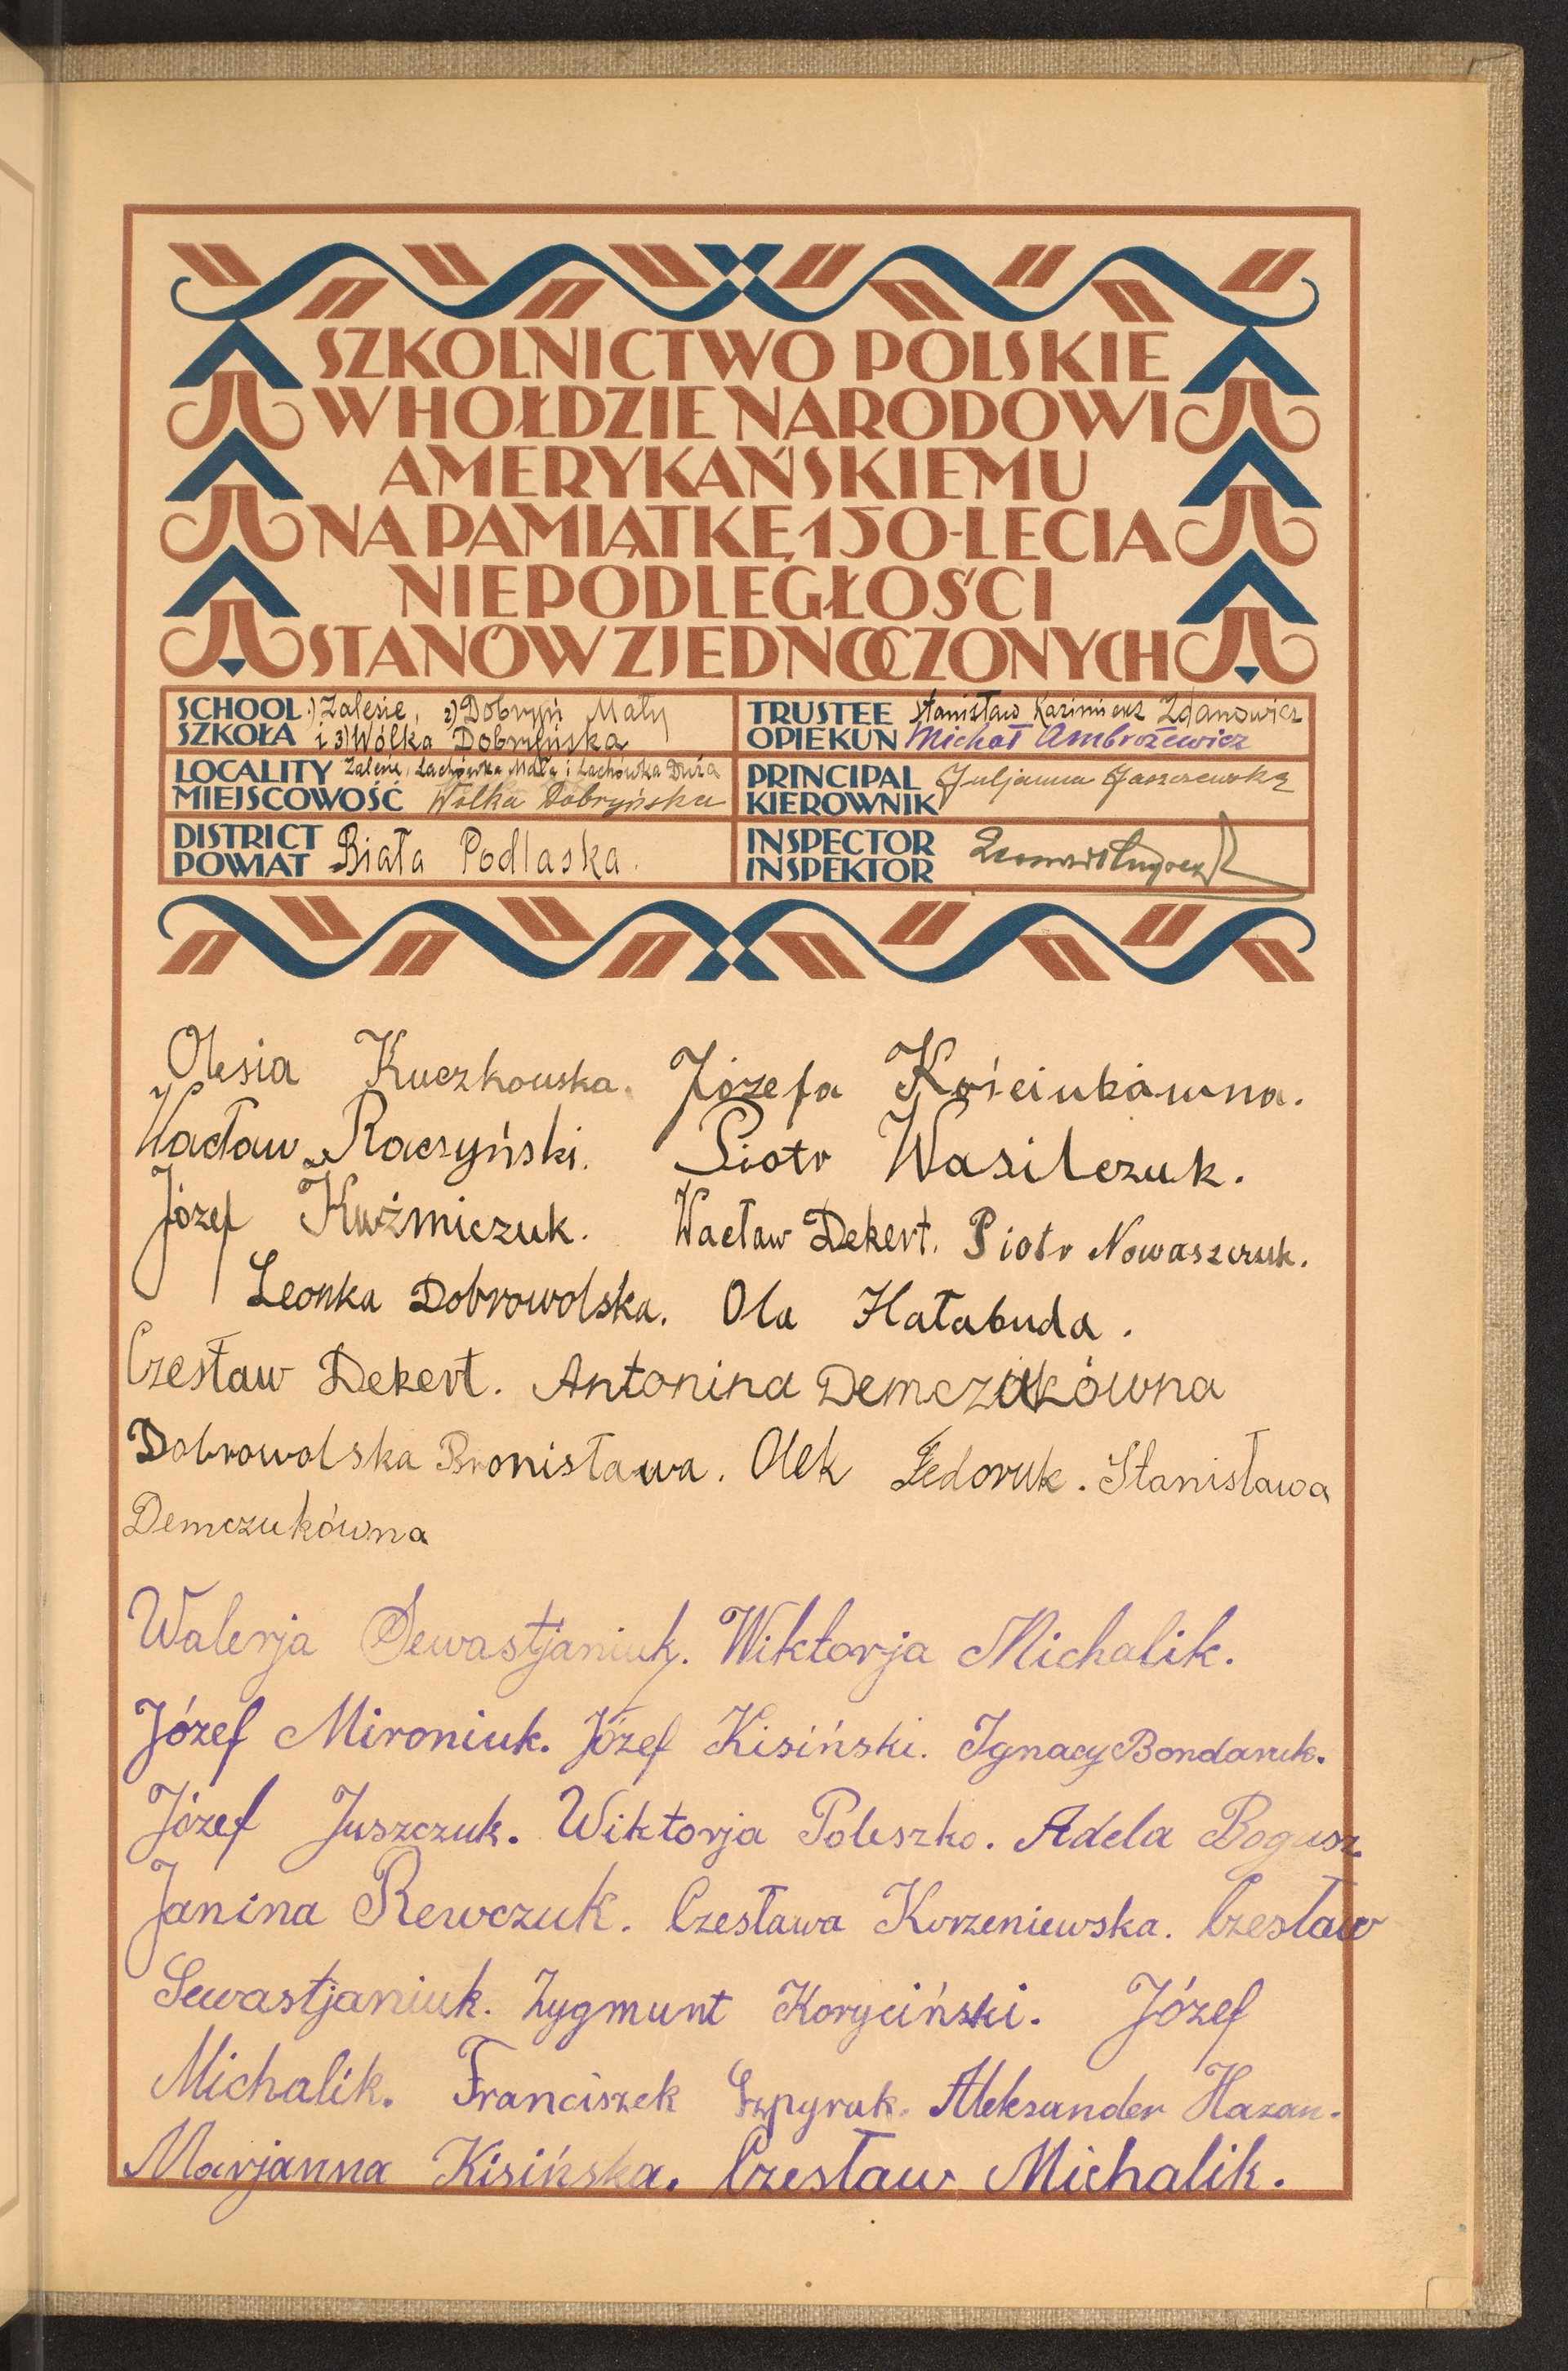 SZKOLNICTWO POLSKIE
W HOŁDZIE NARODOWI
AMERYKAŃSKIEMU
NA PAMIĄTKĘ 150-LECIA
NIEPODLEGŁOŚCI
STANÓW ZJEDNOCZONYCH
SCHOOL 1) Zalesie, 2) Dobryń Mały
SZKOŁA i 3) Wólka Dobryńska
TRUSTEE Stanisław Kazimierz Zdanowicz
OPIEKUN Michał Ambrożewicz
LOCALITY Zalesie, Lachówka Mała i Lachówka Duża
MIEJSCOWOŚĆ Wólka Dobryńska
PRINCIPAL Juljanna Jaszczewska
KIEROWNIK
DISTRICT
POWIAT Biała Podlaska.
INSPECTOR
INSPEKTOR
Olesia Kuczkowska. Józefa Kościukówna.
Wacław Raczyński. Piotr Wasilczuk.
Józef Kuźmiczuk. Wacław Dekert. Piotr Nowaszczuk.
Leonka Dobrowolska. Ola Hałabuda.
Czesław Dekert. Antonina Demczukówna
Dobrowolska Bronisława. Olek Fedoruk. Stanisława
Demczukówna
Walerja Sewastjaniuk. Wiktorja Michalik.
Józef Mironiuk. Józef Kisiński. Ignacy Bondaruk.
Józef Juszczuk. Wiktorja Poleszko. Adela Bogusz
Janina Rewczuk. Czesława Korzeniewska. Czesław
Sewastjaniuk. Zygmunt Koryciński. Józef
Michalik. Franciszek Szpyruk. Aleksander Hazan.
Marjanna Kisińska. Czesław Michalik.